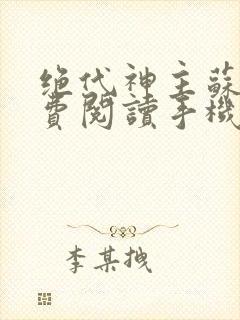 绝代神主蘇
費閱讀手機
李某拽